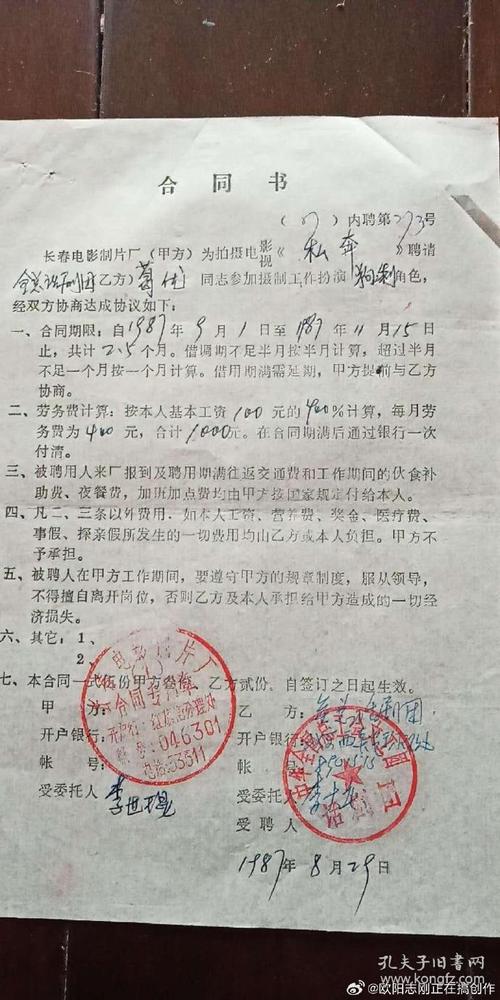 合同书
（87）内聘第273号
长春电影制片厂（甲方）为拍摄电影视《私奔》聘请
全总话剧团乙方）葛优同志参加摄制工作扮演角色，
经双方协商达成协议如下：
一、合同期限：自1987年9月1日至1987年11月15日
止，共计2.5个月。借调期不足半月按半月计算，超过半月
不足一个月按一个月计算。借用期满需延期，甲方提前与乙方
协商。
二、劳务费计算：按本人基本工资100元的400%计算，每月劳
务费为400元，合计1000元。在合同期满后通过银行一次
付清。
三、被聘用人来厂报到及聘用期满往返交通费和工作期间的伙食补
助费、夜餐费，加班加点费均由甲方按国家规定付给本人。
四、凡二、三条以外费用．如本人工资、营养费、奖金、医疗费、
事假、探亲假所发生的一切费用均由乙方或本人负担。甲方不
予承担。
五、被聘人在甲方工作期间，要遵守甲方的规章制度，服从领导，
不得擅自离开岗位，否则乙方及本人承担给甲方造成的一切经
济损失。
六、其它：1、
2、
七、本合同一式伍份甲方叁份，乙方贰份，自签订之日起生效。
甲方：
乙方：全总话剧团
开户银行：
开户银行：
帐号：
帐号：
受委托人
受委托人
受聘人
电影制片厂
合同专用章
046301
电话53311
1987年8月29日
孔夫子旧书网
@欧阳志刚正在搞创作